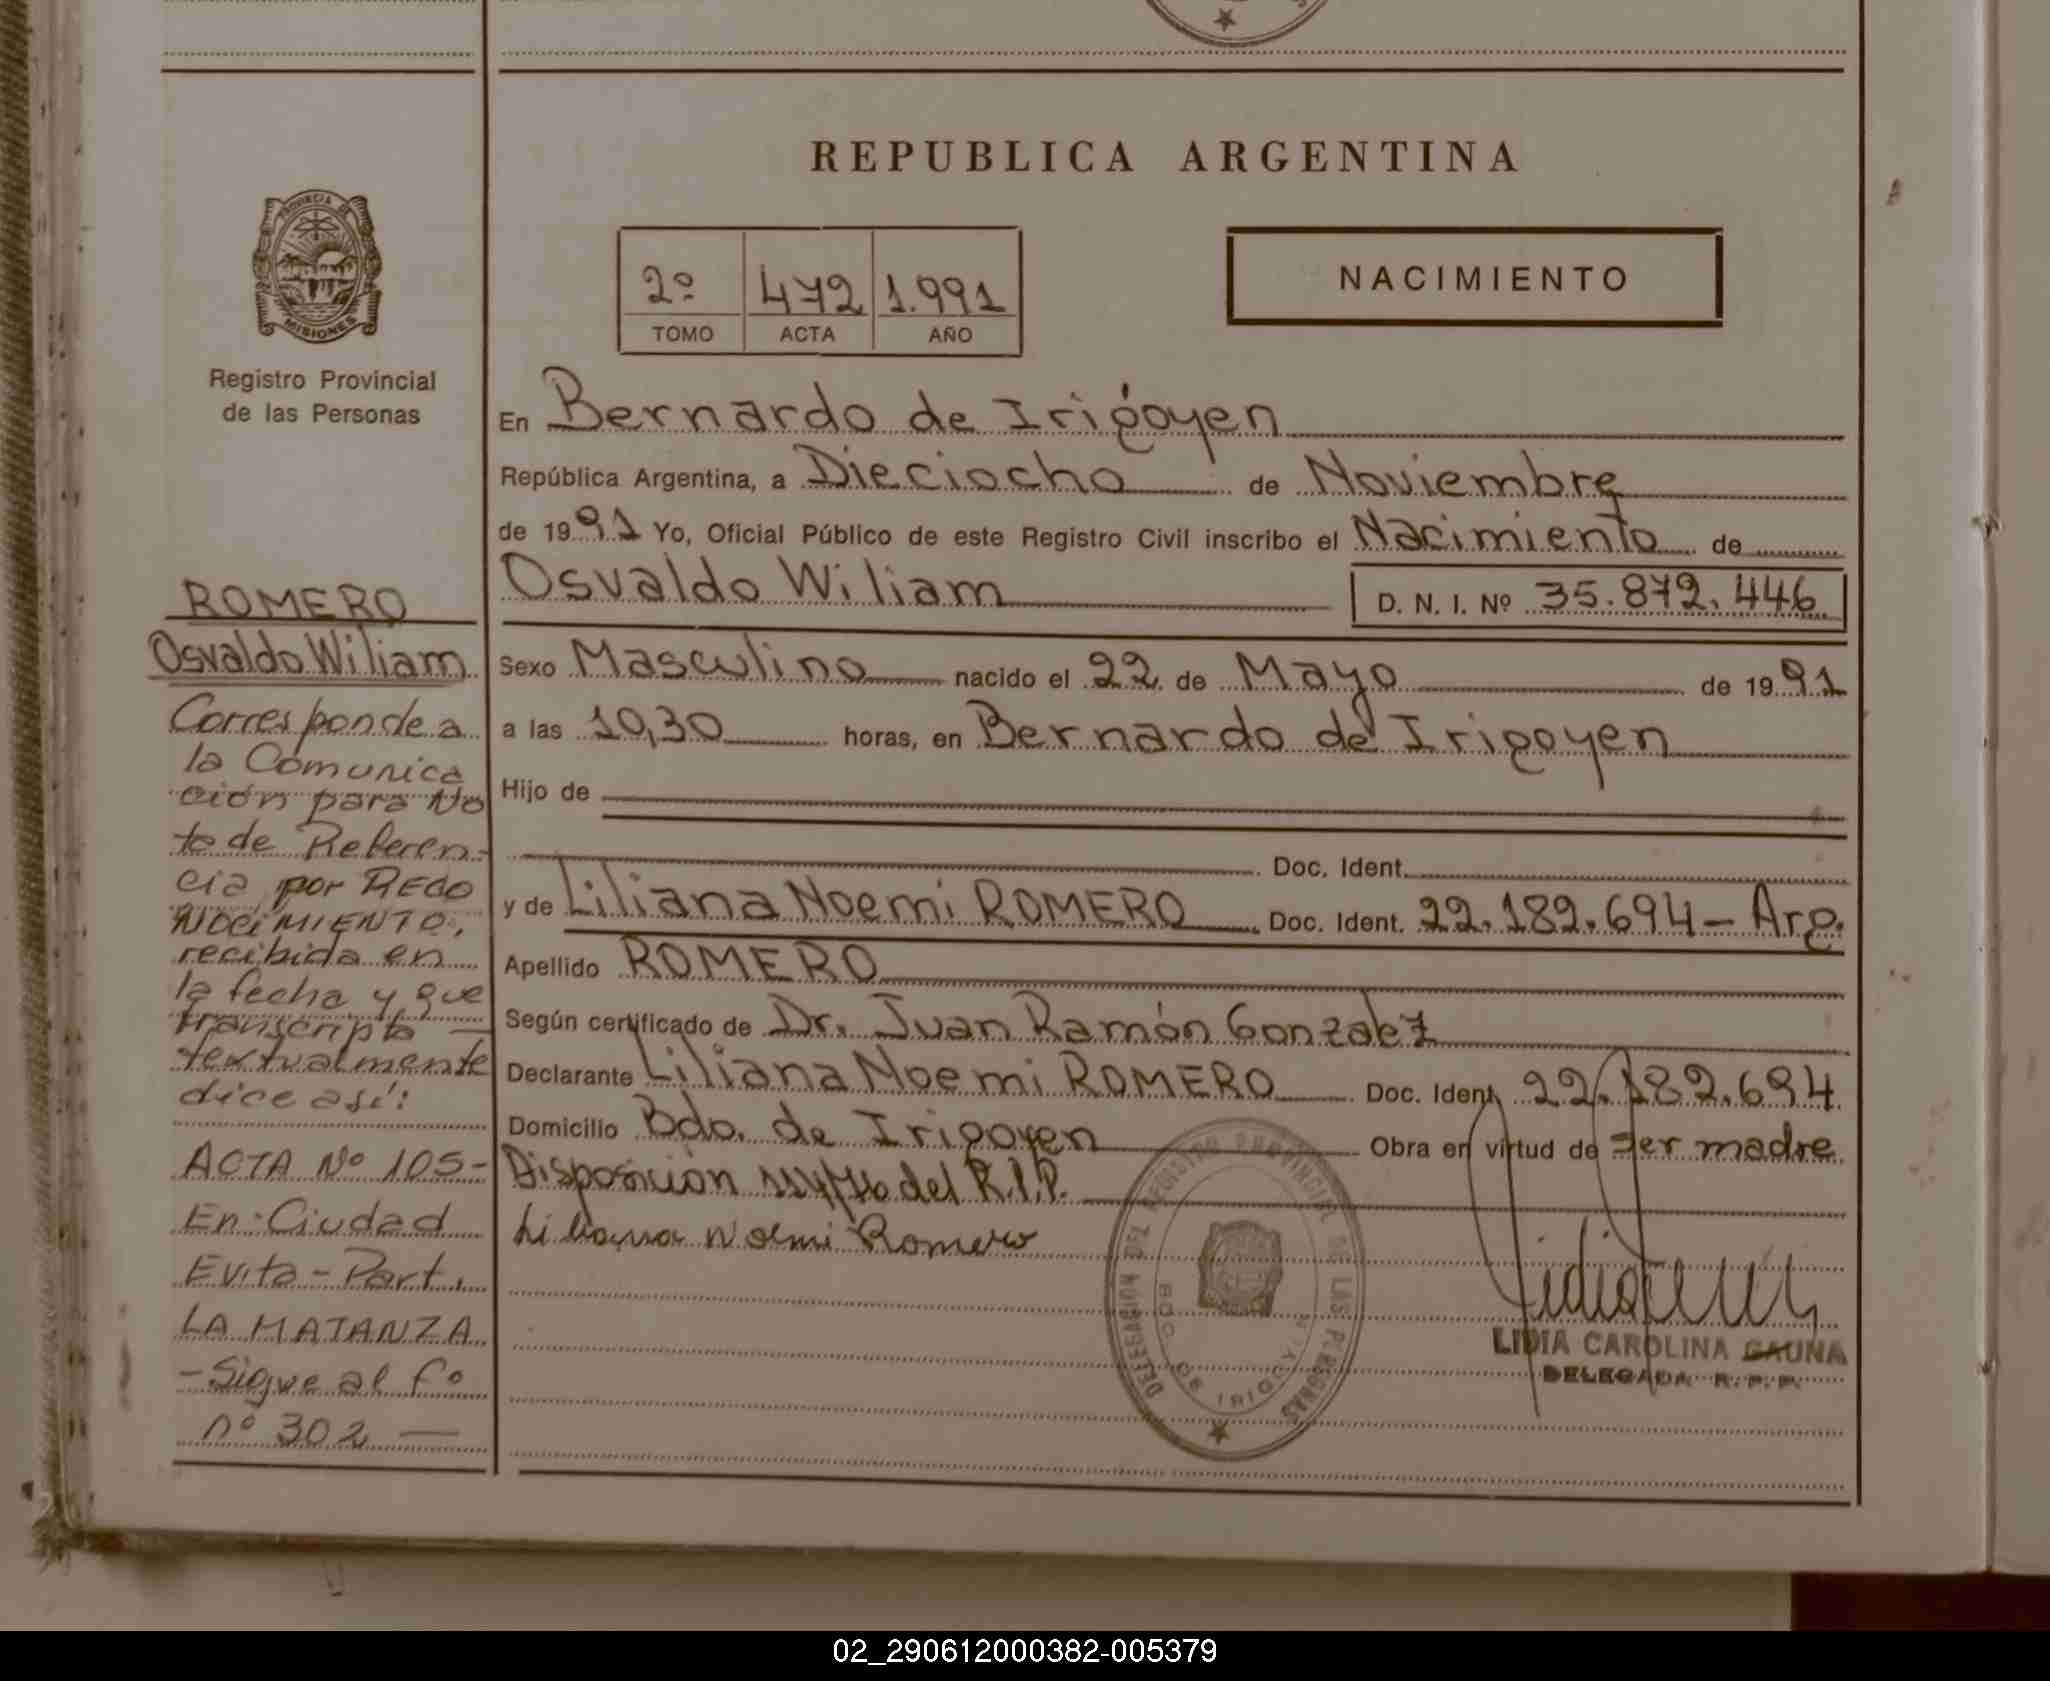 REPUBLICA ARGENTINA
PROVINCIA DE
MISIONES
Registro Provincial
de las Personas
2º 472 1.991
TOMO ACTA AÑO
NACIMIENTO
En Bernardo de Irigoyen
República Argentina, a Dieciocho de Noviembre
de 1991 Yo, Oficial Público de este Registro Civil inscribo el Nacimiento de
Osvaldo Wiliam D. N. I. Nº 35.872.446
Sexo Masculino nacido el 22 de Mayo de 1991
a las 10,30 horas, en Bernardo de Irigoyen
Hijo de
Doc. Ident.
y de Liliana Noemi ROMERO Doc. Ident. 22.182.694 - Arg.
Apellido ROMERO
Según certificado de Dr. Juan Ramón Gonzalez
Declarante Liliana Noemi ROMERO Doc. Ident. 22.182.694
Domicilio Bdo. de Irigoyen Obra en virtud de ser madre
Disposicion del R.P.P.
Liliana Noemi Romero
DELEGACION DEL REGISTRO PROVINCIAL DE LAS PERSONAS
BDO. DE IRIGOYEN
LIDIA CAROLINA GAUNA
DELEGADA R.P.P.
ROMERO
Osvaldo Wiliam
Corresponde a
la Comunica
ción para No
ta de Referen-
cia, por RECO
NOCIMIENTO,
recibida en
la fecha y que
transcripta —
textualmente
dice así:
ACTA Nº 105-
En: Ciudad
Evita - Part.
LA MATANZA
- Sigue al fº
nº 302 —
02_290612000382-005379